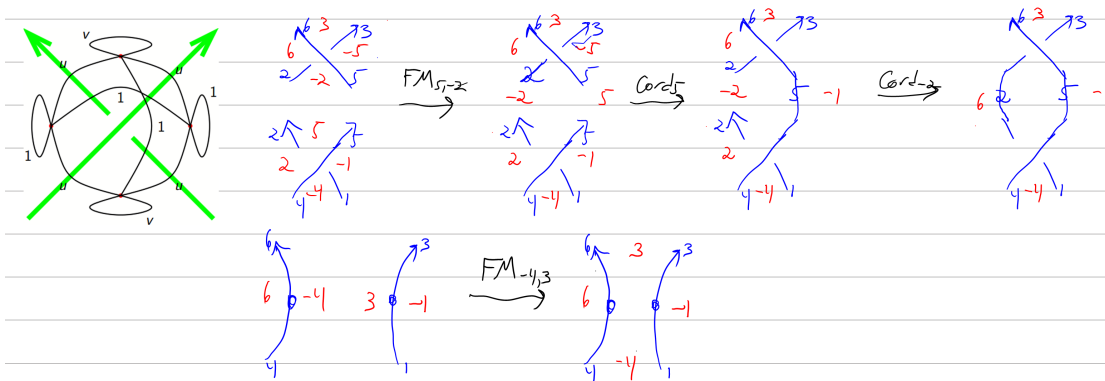 v
u u
1 1 1 1
u u
v
6 3 3
6 -5
2 -2 5
2 5 5
2 -1
4 -4 1
FM5,-2
6 3 3
6 -5
2 5
-2 5
2 5
2 -1
4 -4 1
Cord5
6 3 3
6
2
-2 5 -1
2
2
4 -4 1
Cord-2
6 3 3
6 2 5 -
4 -4 1
6 3
6 -4 3 -1
4 1
FM-4,3
6 3 3
6 -1
4 -4 1